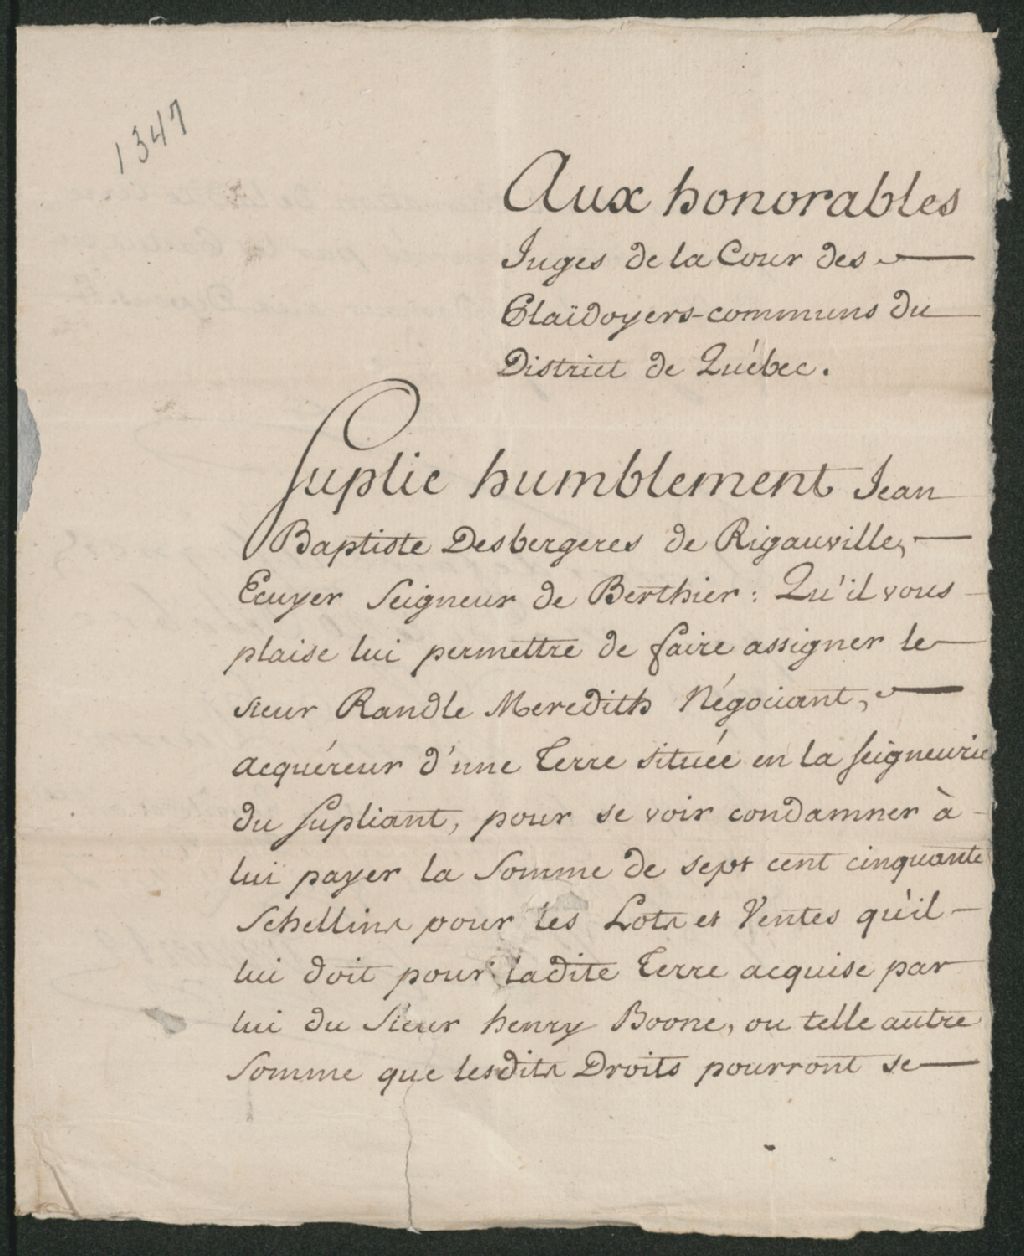 1347
Aux honorables
Juges de la Cour des
Plaidoyers-communs du
District de Québec.
Suplie humblement Jean
Baptiste Desbergeres de Rigauville,
Ecuyer Seigneur de Berthier : Qu'il vous
plaise lui permettre de faire assigner le
sieur Randle Meredith Négociant,
acquéreur d'une Terre située en la seigneurie
du Supliant, pour se voir condamner à
lui payer la Somme de sept cent cinquante
Schellins pour les Lots et Ventes qu'il
lui doit pour ladite Terre acquise par
lui du Sieur henry Boone, ou telle autre
Somme que lesdits Droits pourront se